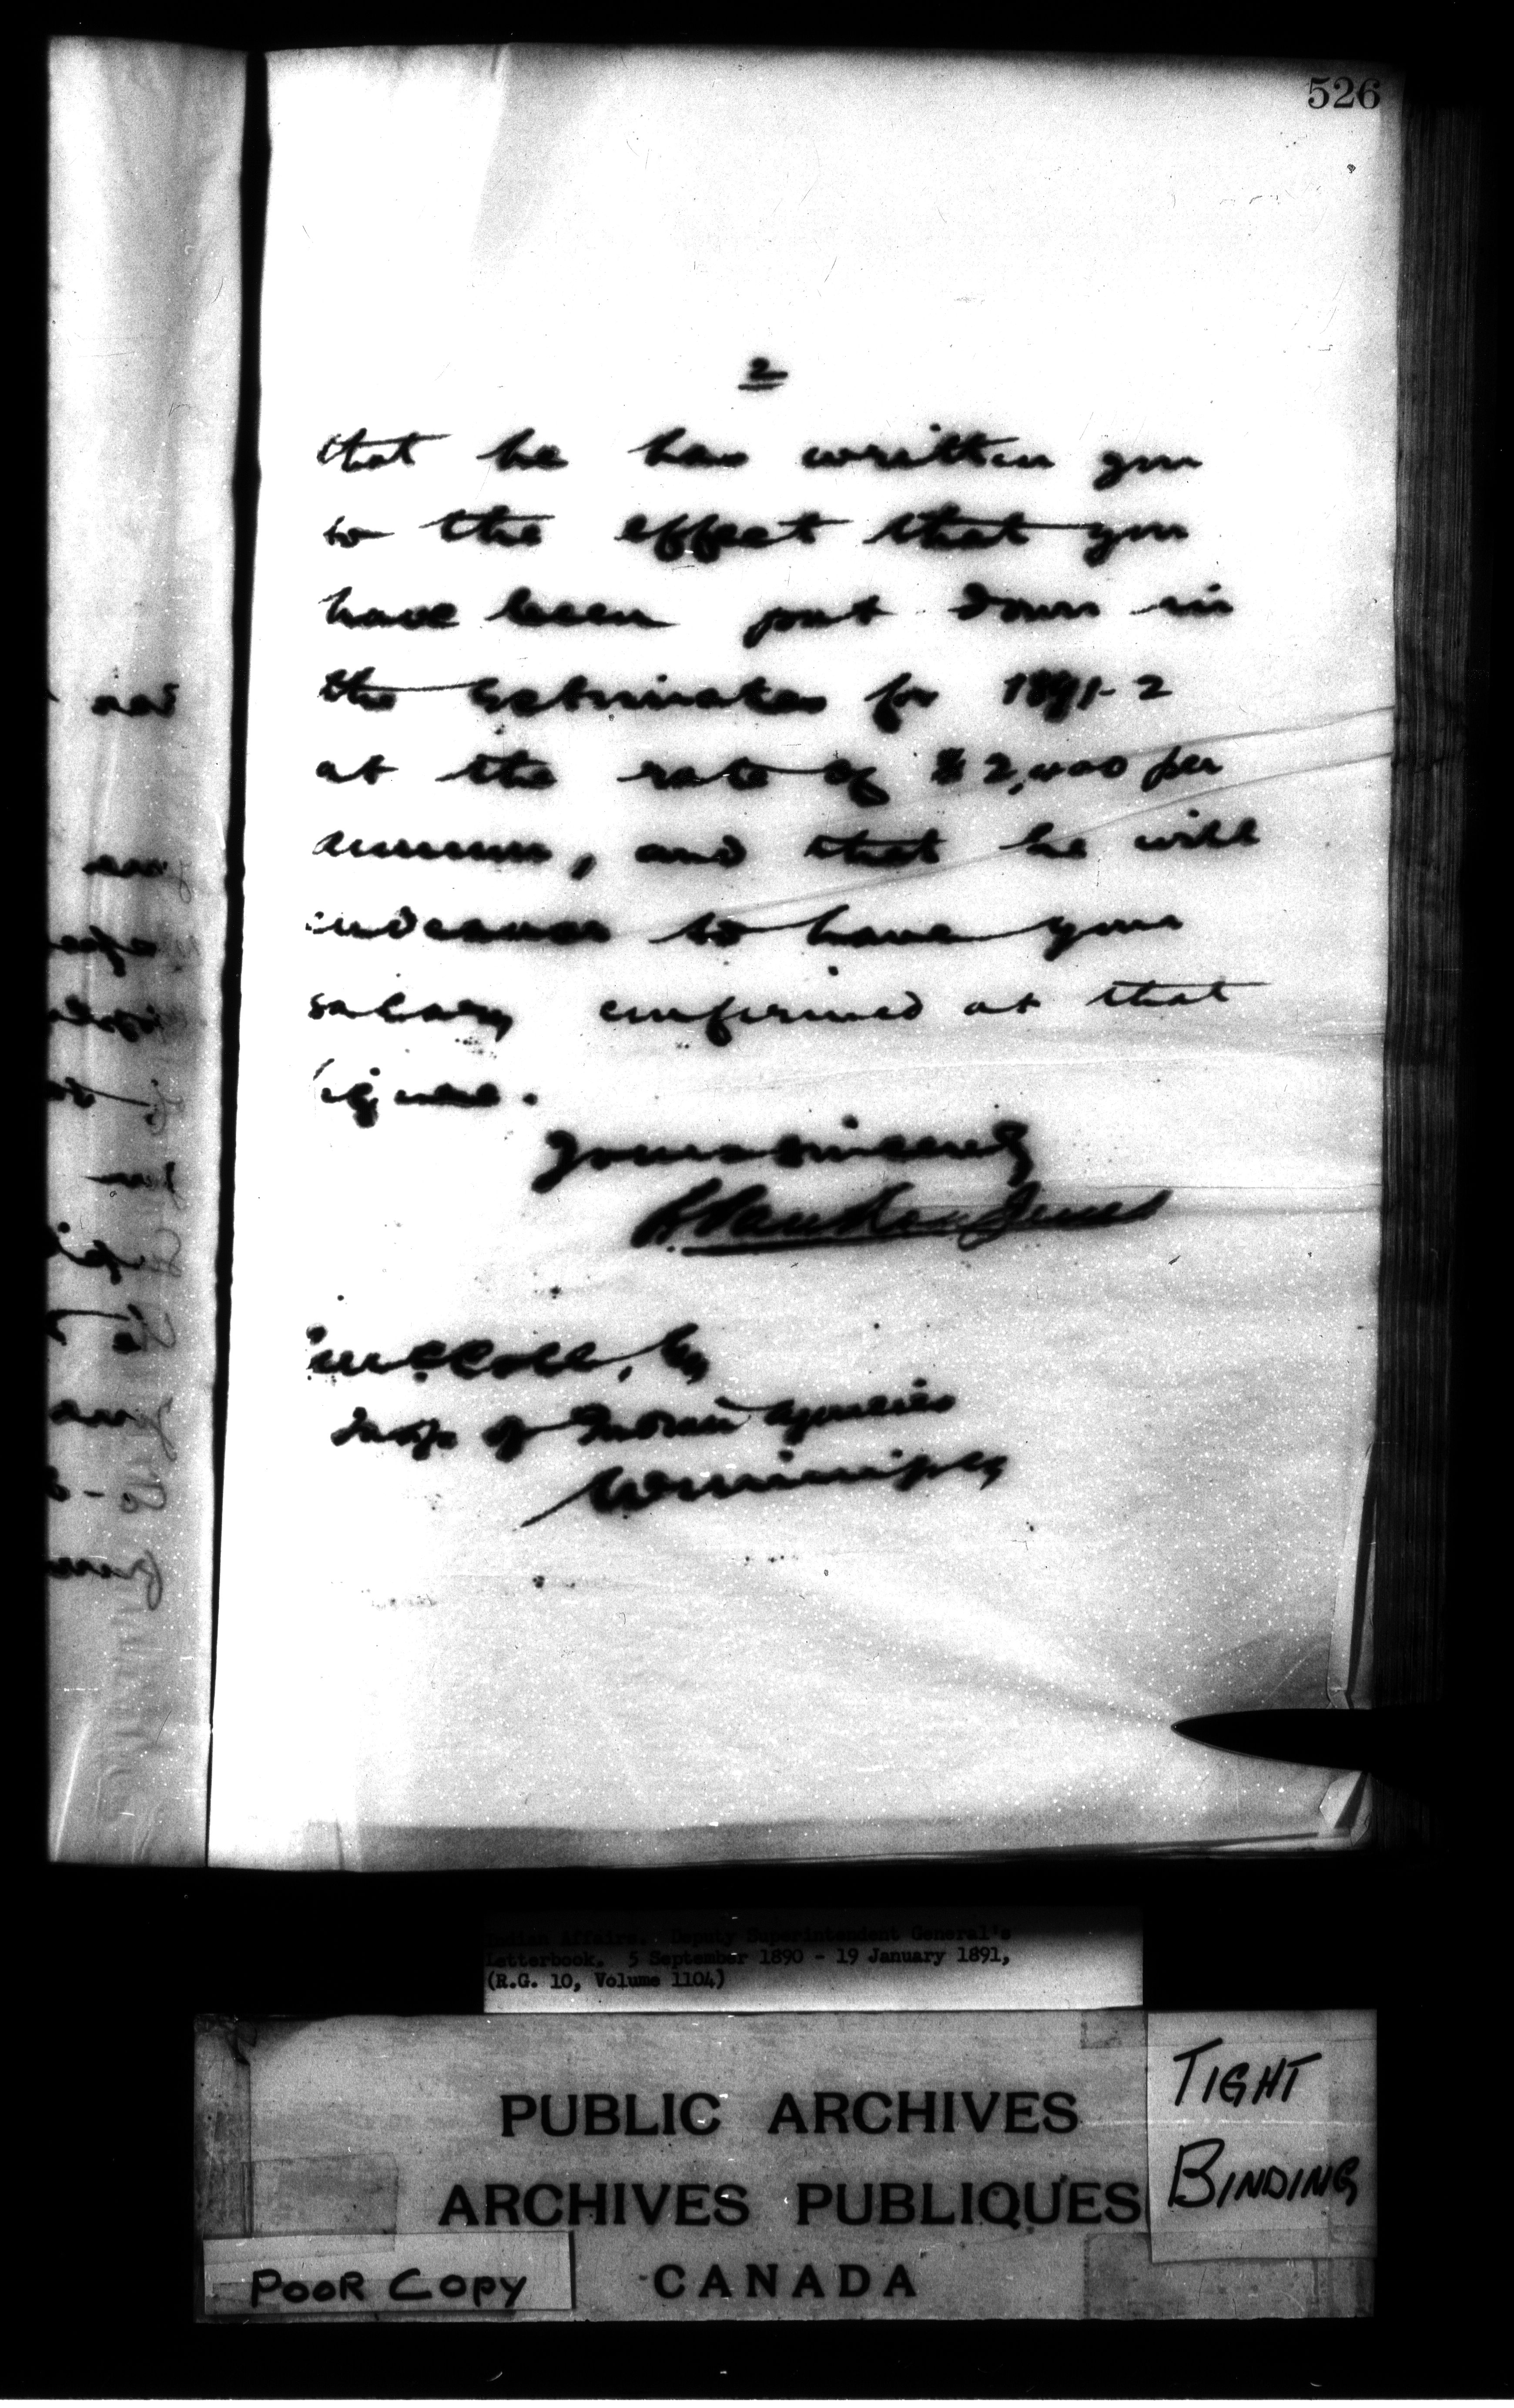 526
2
that he has written you
to the effect that you
have been put down in
the Estimates for 1891-2
at the rate of $2,000 per
annum, and that he will
endeavor to have your
salary confirmed at that
figure.
Yours sincerely
McColl, Esq
Insp. of Indian Agencies
Winnipeg
Indian Affairs. Deputy Superintendent General's
Letterbook. 5 September 1890 - 19 January 1891,
(R.G. 10, Volume 1104)
TIGHT
BINDING
PUBLIC ARCHIVES
ARCHIVES PUBLIQUES
CANADA
POOR COPY